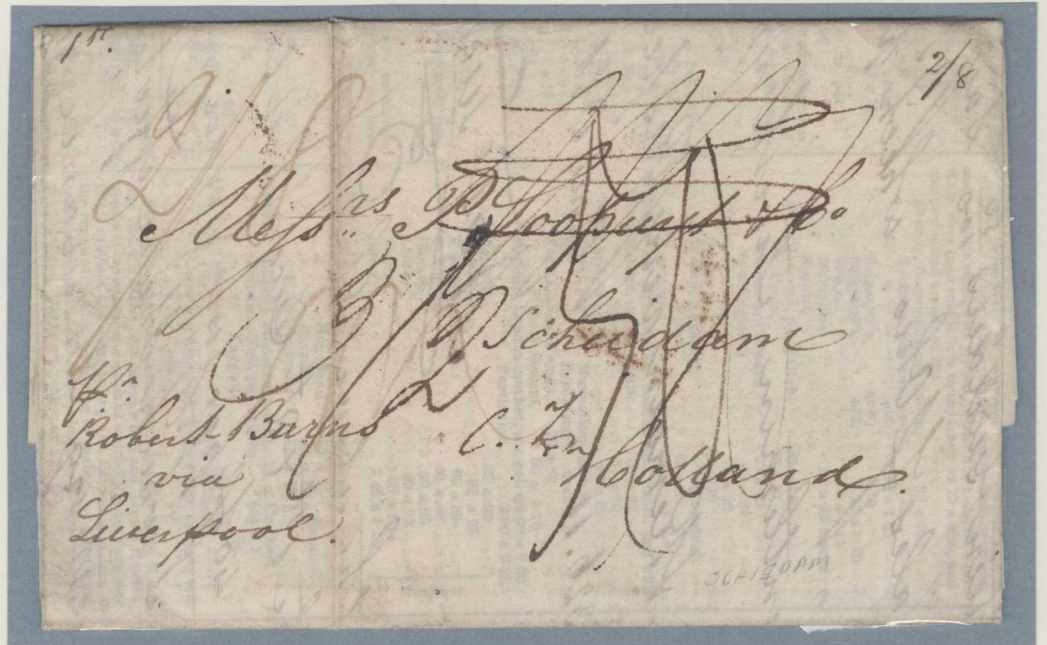 1st.
2/8
Messrs. P Loopuyt & Co
Schiedam
Holland.
pr
Robert Burns
via
Liverpool.
SCHIEDAM